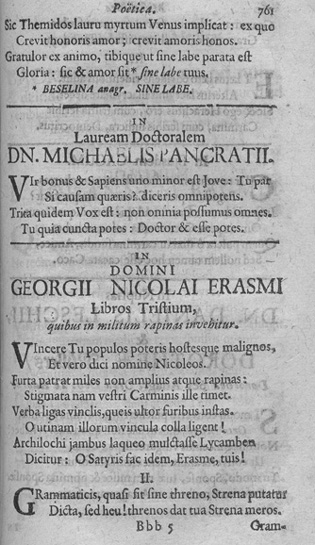 Poëtica. 761
Sic Themidos lauru myrtum Venus implicat : ex quo
Crevit honoris amor ; crevit amoris honos.
Gratulor ex animo, tibique ut sine labe parata est
Gloria : sic & amor sit * sine labe tuus.
* BESELINA anagr. SINE LABE.
IN
Lauream Doctoralem
DN. MICHAELIS PANCRATII.
VIr bonus & Sapiens uno minor est Jove : Tu par
Si causam quæris ? diceris omnipotens.
Trita quidem Vox est : non omnia possumus omnes.
Tu quia cuncta potes : Doctor & esse potes.
IN
DOMINI
GEORGII NICOLAI ERASMI
Libros Tristium,
quibus in militum rapinas invehitur.
VIncere Tu populos poteris hostesque malignos,
Et vero dici nomine Nicoleos.
Furta patrat miles non amplius atque rapinas :
Stigmata nam vestri Carminis ille timet.
Verba ligas vinclis, queis ultor furibus instas.
O utinam illorum vincula colla ligent !
Archilochi jambus laqueo mulctasse Lycamben
Dicitur : O Satyris fac idem, Erasme, tuis !
II.
GRammaticis, quasi sit sine threno, Strena putatur
Dicta, sed heu ! threnos dat tua Strena meros.
Bbb 5 Gram-